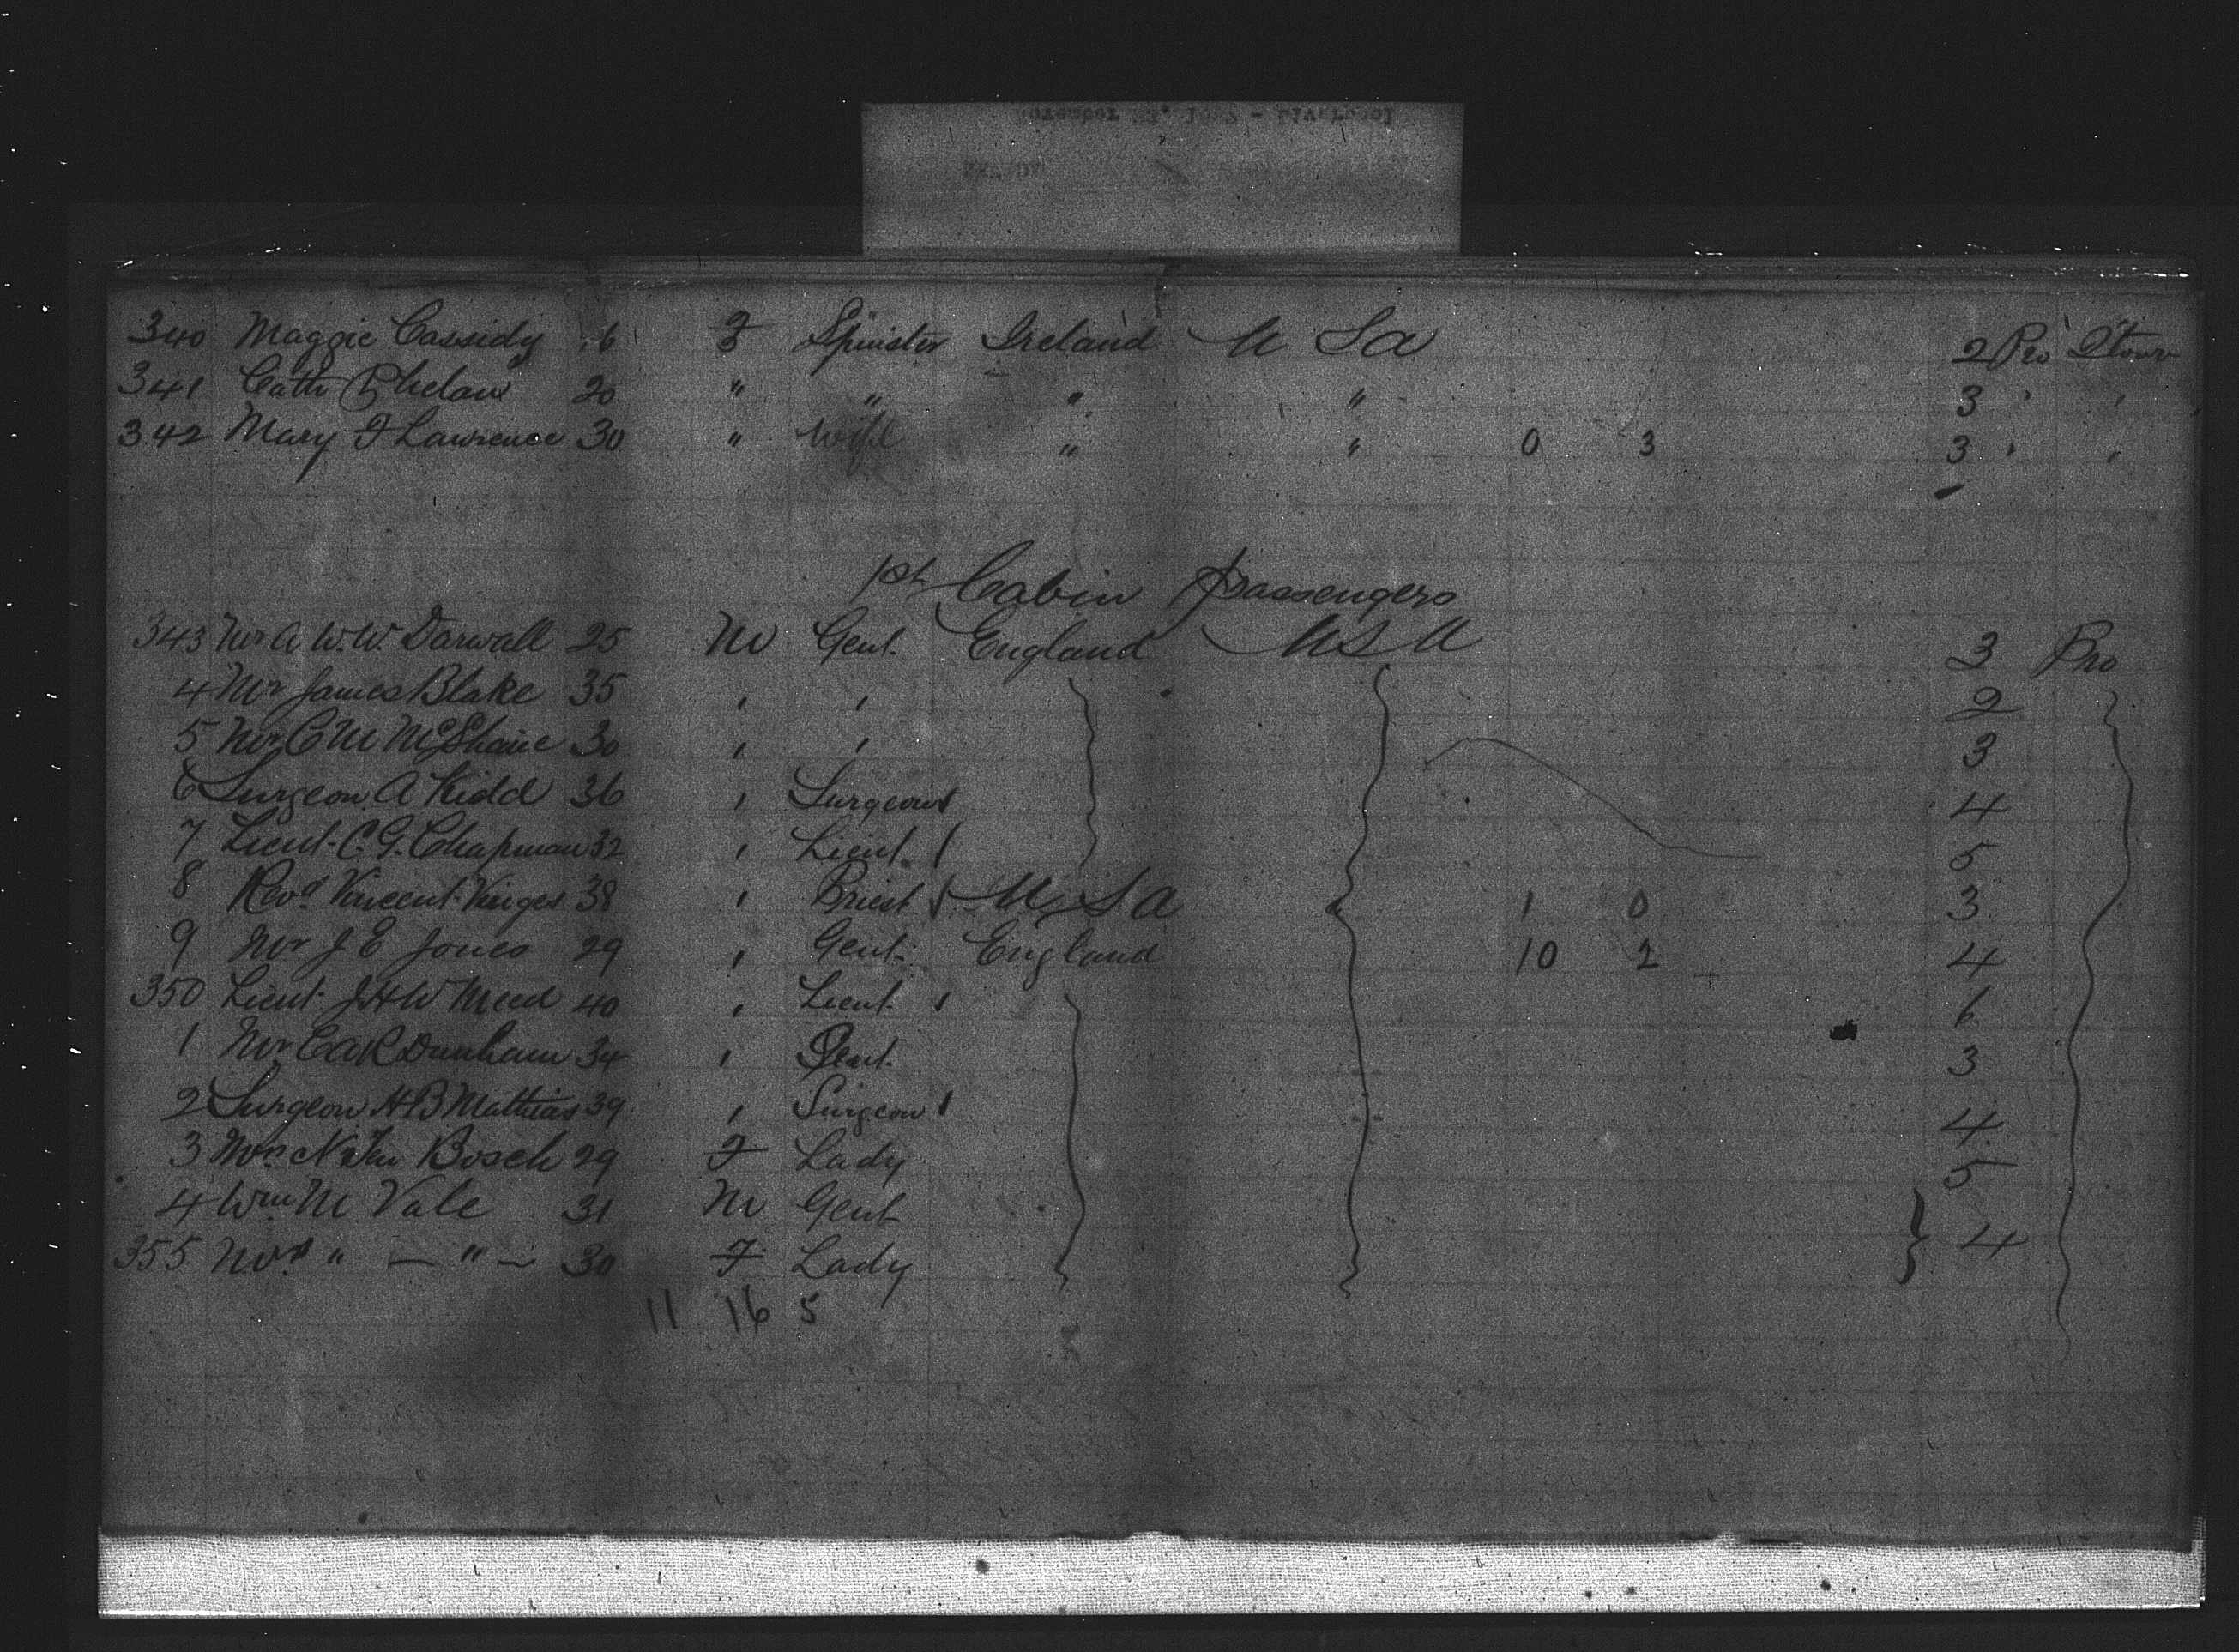 340 Maggie Cassidy 16 F Spinster Ireland U S a 2 Pro Qtown
341 Cath Phelan 20 " " " " 3 " "
342 Mary F Lawrence 30 " Wife " " 0 3 3 " "
1st Cabin Passengers
343 Mr A W. W. Darwall 25 M Gent. England U S A 3 Pro
4 Mr James Blake 35 " " 2
5 Mr C M McShane 30 " " 3
6 Surgeon A Kidd 36 " Surgeon 4
7 Lieut. C. G. Chapman 32 " Lieut. 5
8 Revd Vincent 38 " Priest U S A 1 0 3
9 Mr J E Jones 29 " Gent. England 10 2 4
350 Lieut. J H W Meed 40 " Lieut. 6
1 Mr E A R Dunham 34 " Gent. 3
2 Surgeon H B Mathias 39 " Surgeon 4
3 Bosch 29 F Lady 5
4 Wm M Vale 31 M Gent 4
355 Mrs " — " — 30 F Lady
11 16 5